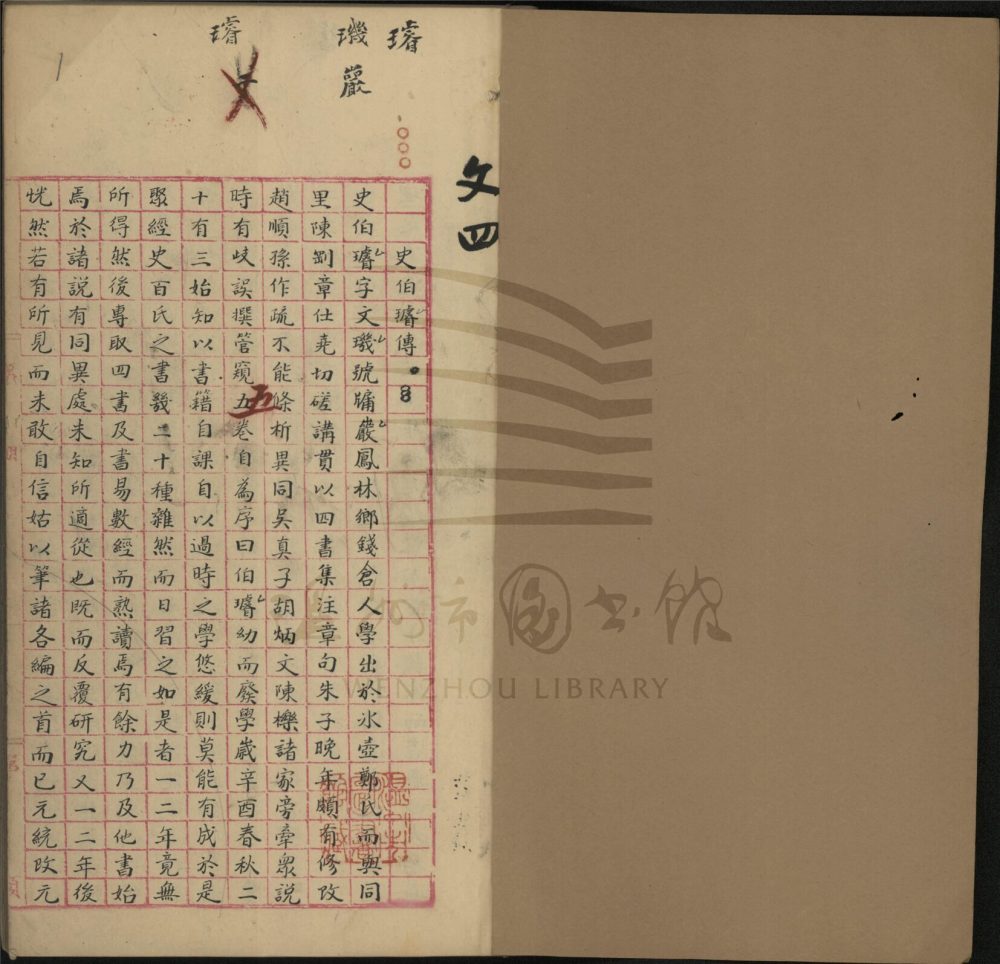 文四
璿
璣
巖
璿
文
史伯璿傳
史伯璿字文璣號牗巖鳳林鄉錢倉人學出於氷壺鄭氏而與同
里陳剴章仕堯切磋講貫以四書集注章句朱子晚年頗有修改
趙順孫作疏不能條析異同吳真子胡炳文陳櫟諸家旁牽眾說
時有歧誤撰管窺五卷自為序曰伯璿幼而廢學歲辛酉春秋二
十有三始知以書籍自課自以過時之學悠緩則莫能有成於是
聚經史百氏之書幾二十種雜然而日習之如是者一二年竟無
所得然後專取四書及書易數經而熟讀焉有餘力乃及他書始
焉於諸說有同異處未知所適從也既而反覆研究又一二年後
恍然若有所見而未敢自信姑以筆諸各編之首而已元統改元
五
州市圖書館
WENZHOU LIBRARY